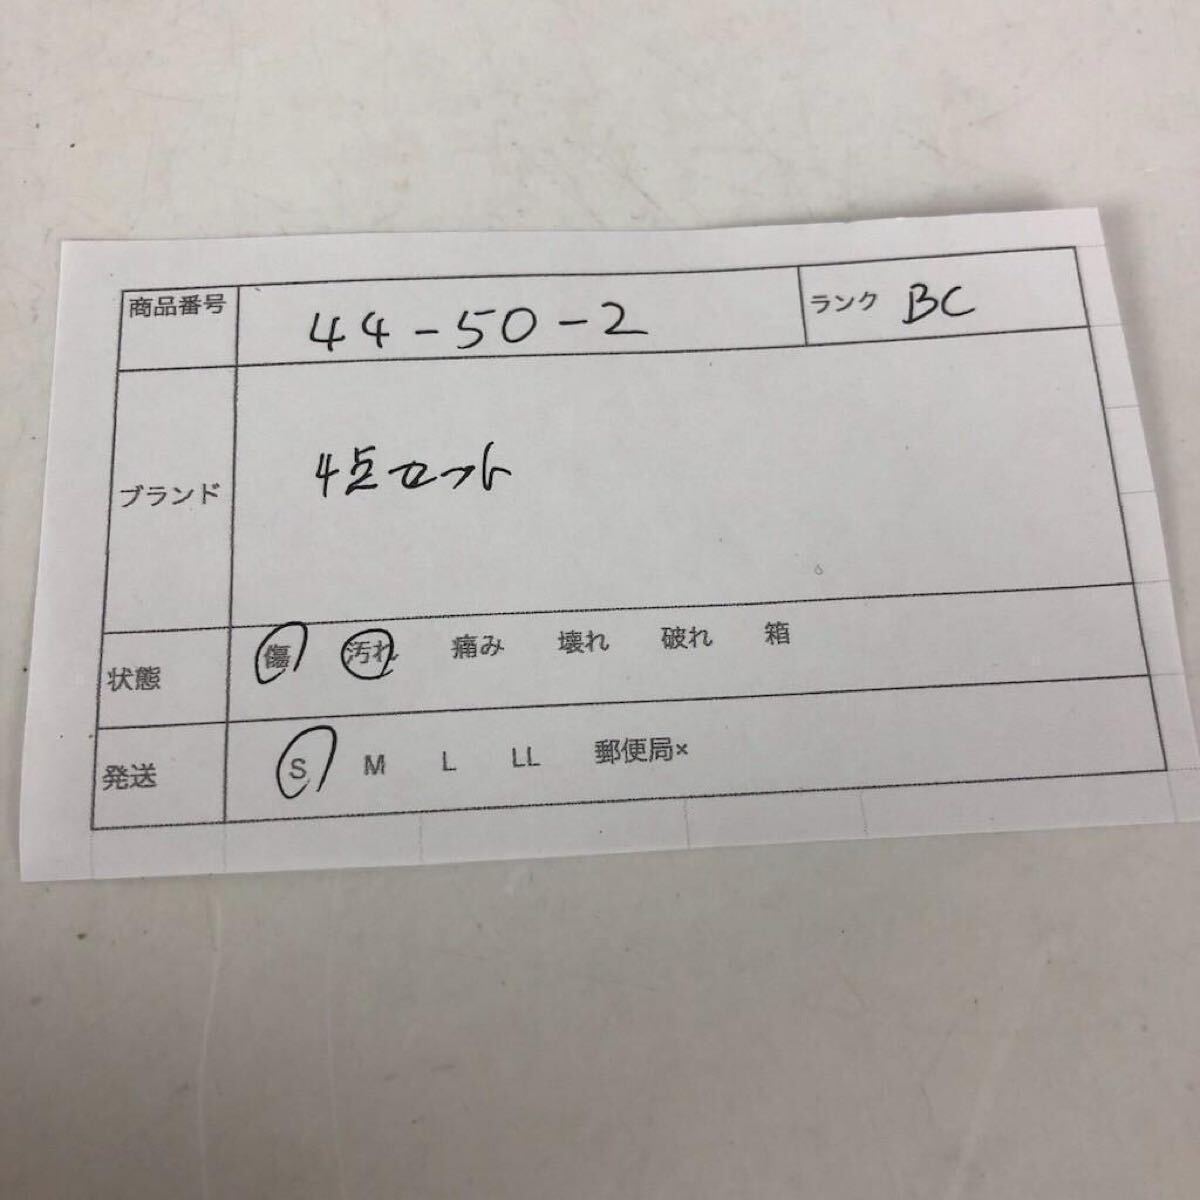 商品番号 44-50-2 ランク BC
ブランド 4点セット
状態 傷 汚れ 痛み 壊れ 破れ 箱
発送 S M L LL 郵便局×